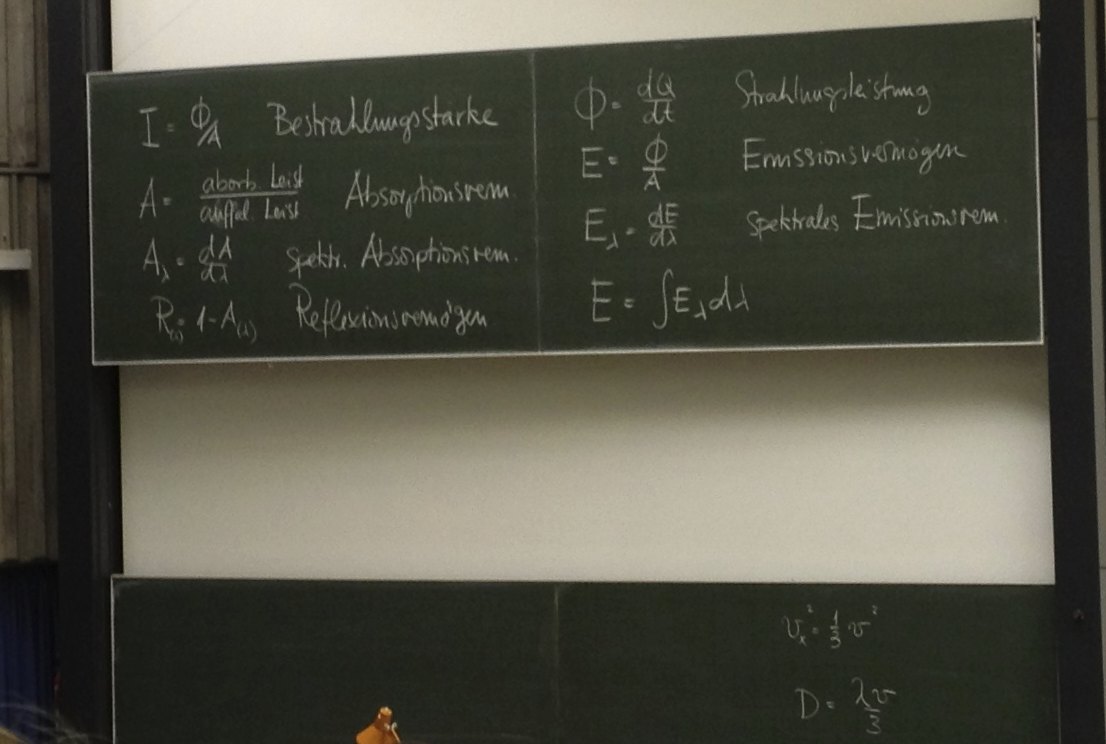 I = Φ/A Bestrahlungsstärke
A = absorb. Leist / auffal. Leist Absorptionsverm.
A_λ = dA/dλ spektr. Absorptionsverm.
R_(λ) = 1 - A_(λ) Reflexionsvermögen
Φ = dQ/dt Strahlungsleistung
E = Φ/A Emissionsvermögen
E_λ = dE/dλ spektrales Emissionsverm.
E = ∫E_λ dλ
v_x² = 1/3 v²
D = λv/3